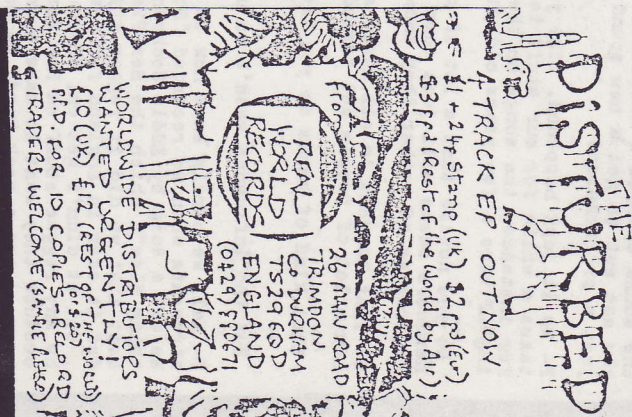 THE
DiSTURBED
4 TRACK EP OUT NOW
£1 + 24p Stamp (UK) $2 ppd (Eur)
$3 ppd (Rest of the World by Air)!
From
REAL
WORLD
RECORDS
26 MAIN ROAD
TRIMDON
CO DURHAM
TS29 6QD
ENGLAND
(0429)
WORLDWIDE DISTRIBUTORS
WANTED URGENTLY!
£10 (UK) £12 (REST OF THE WORLD)
(or $20)
P.P.D. FOR 10 COPIES - RECORD
TRADERS WELCOME (SAMPLE PLEASE)